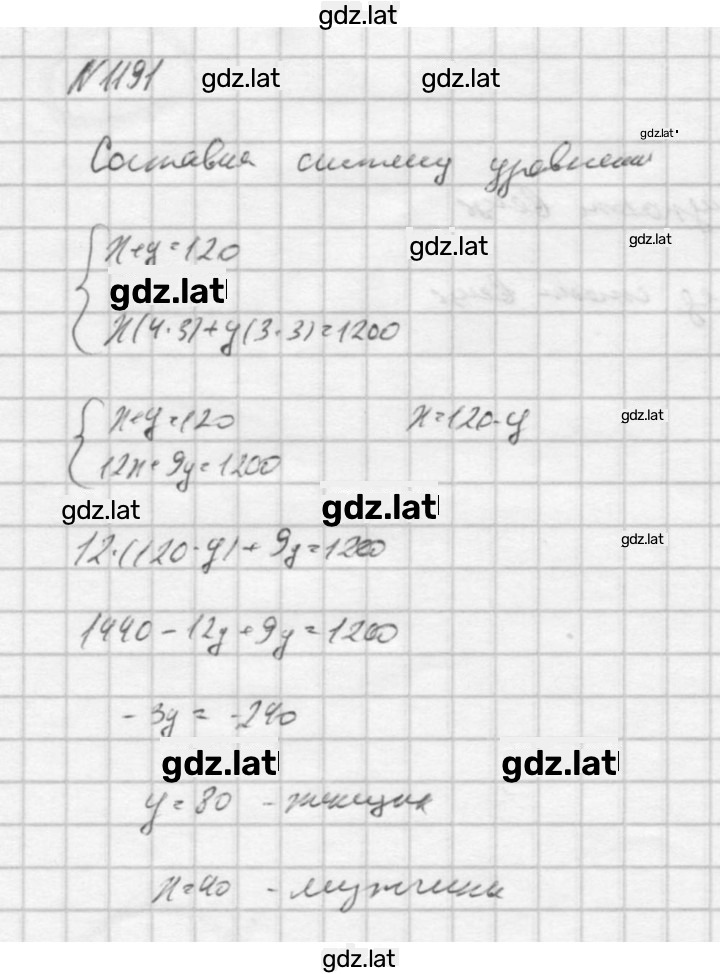 gdz.lat
N 1191 gdz.lat gdz.lat
gdz.lat
Составил систему уравнений
x+y=120 gdz.lat gdz.lat
gdz.lat
x(4·3)+y(3·3)=1200
x+y=120 x=120-y gdz.lat
12x+9y=1200
gdz.lat gdz.lat
12·(120-y)+9y=1200 gdz.lat
1440-12y+9y=1200
-3y = -240
gdz.lat gdz.lat
y=80 - женщин
x=40 - мужчины
gdz.lat